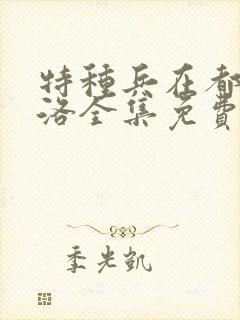 特種兵在都
洛全集免費
季光凱